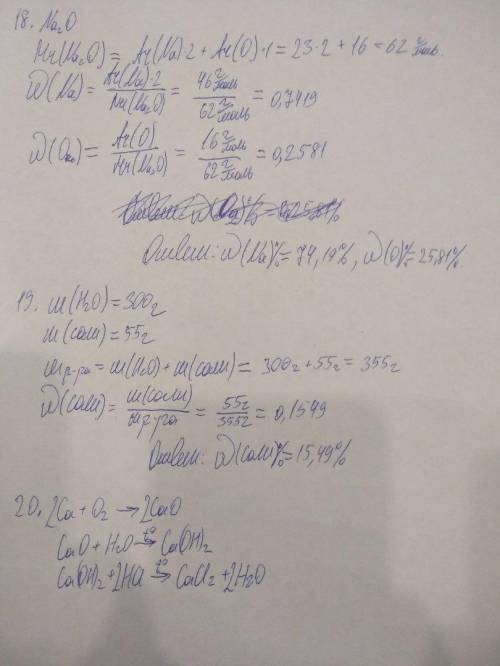 18. Na₂O
Mr(Na₂O) = Ar(Na)·2 + Ar(O)·1 = 23·2 + 16 = 62 г/моль.
W(Na) = Ar(Na)·2 / Mr(Na₂O) = 46 г/моль / 62 г/моль = 0,7419
W(O) = Ar(O) / Mr(Na₂O) = 16 г/моль / 62 г/моль = 0,2581
Ответ: W(Na)% = 74,19%, W(O)% = 25,81%.
19. m(H₂O) = 300г
m(соли) = 55г
m р-ра = m(H₂O) + m(соли) = 300г + 55г = 355г
W(соли) = m(соли) / m р-ра = 55г / 355г = 0,1549
Ответ: W(соли)% = 15,49%
20. 2Ca + O₂ → 2CaO
CaO + H₂O →t° Ca(OH)₂
Ca(OH)₂ + 2HCl →t° CaCl₂ + 2H₂O